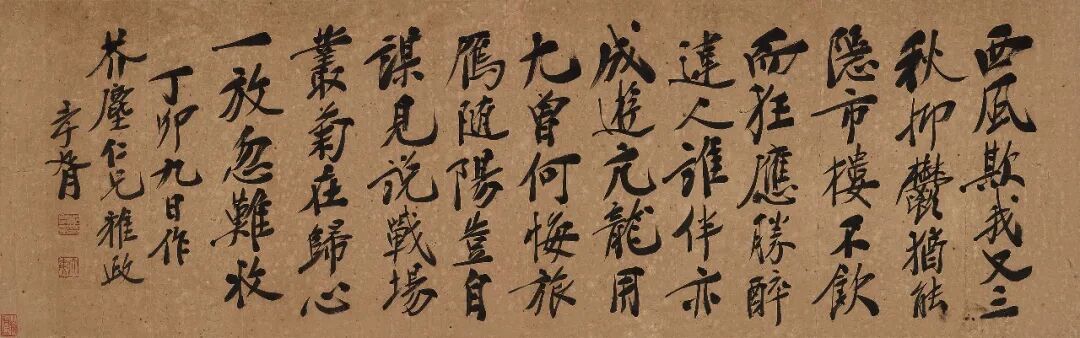 西風欺我又三
秋抑鬱猶能
隱市樓不飲
而狂應勝醉
違人誰伴亦
成遊亢龍用
九曾何悔旅
鴈隨陽豈自
謀見說戰場
叢菊在歸心
一放忽難收
丁卯九日作
芥塵仁兄雅政
孝胥